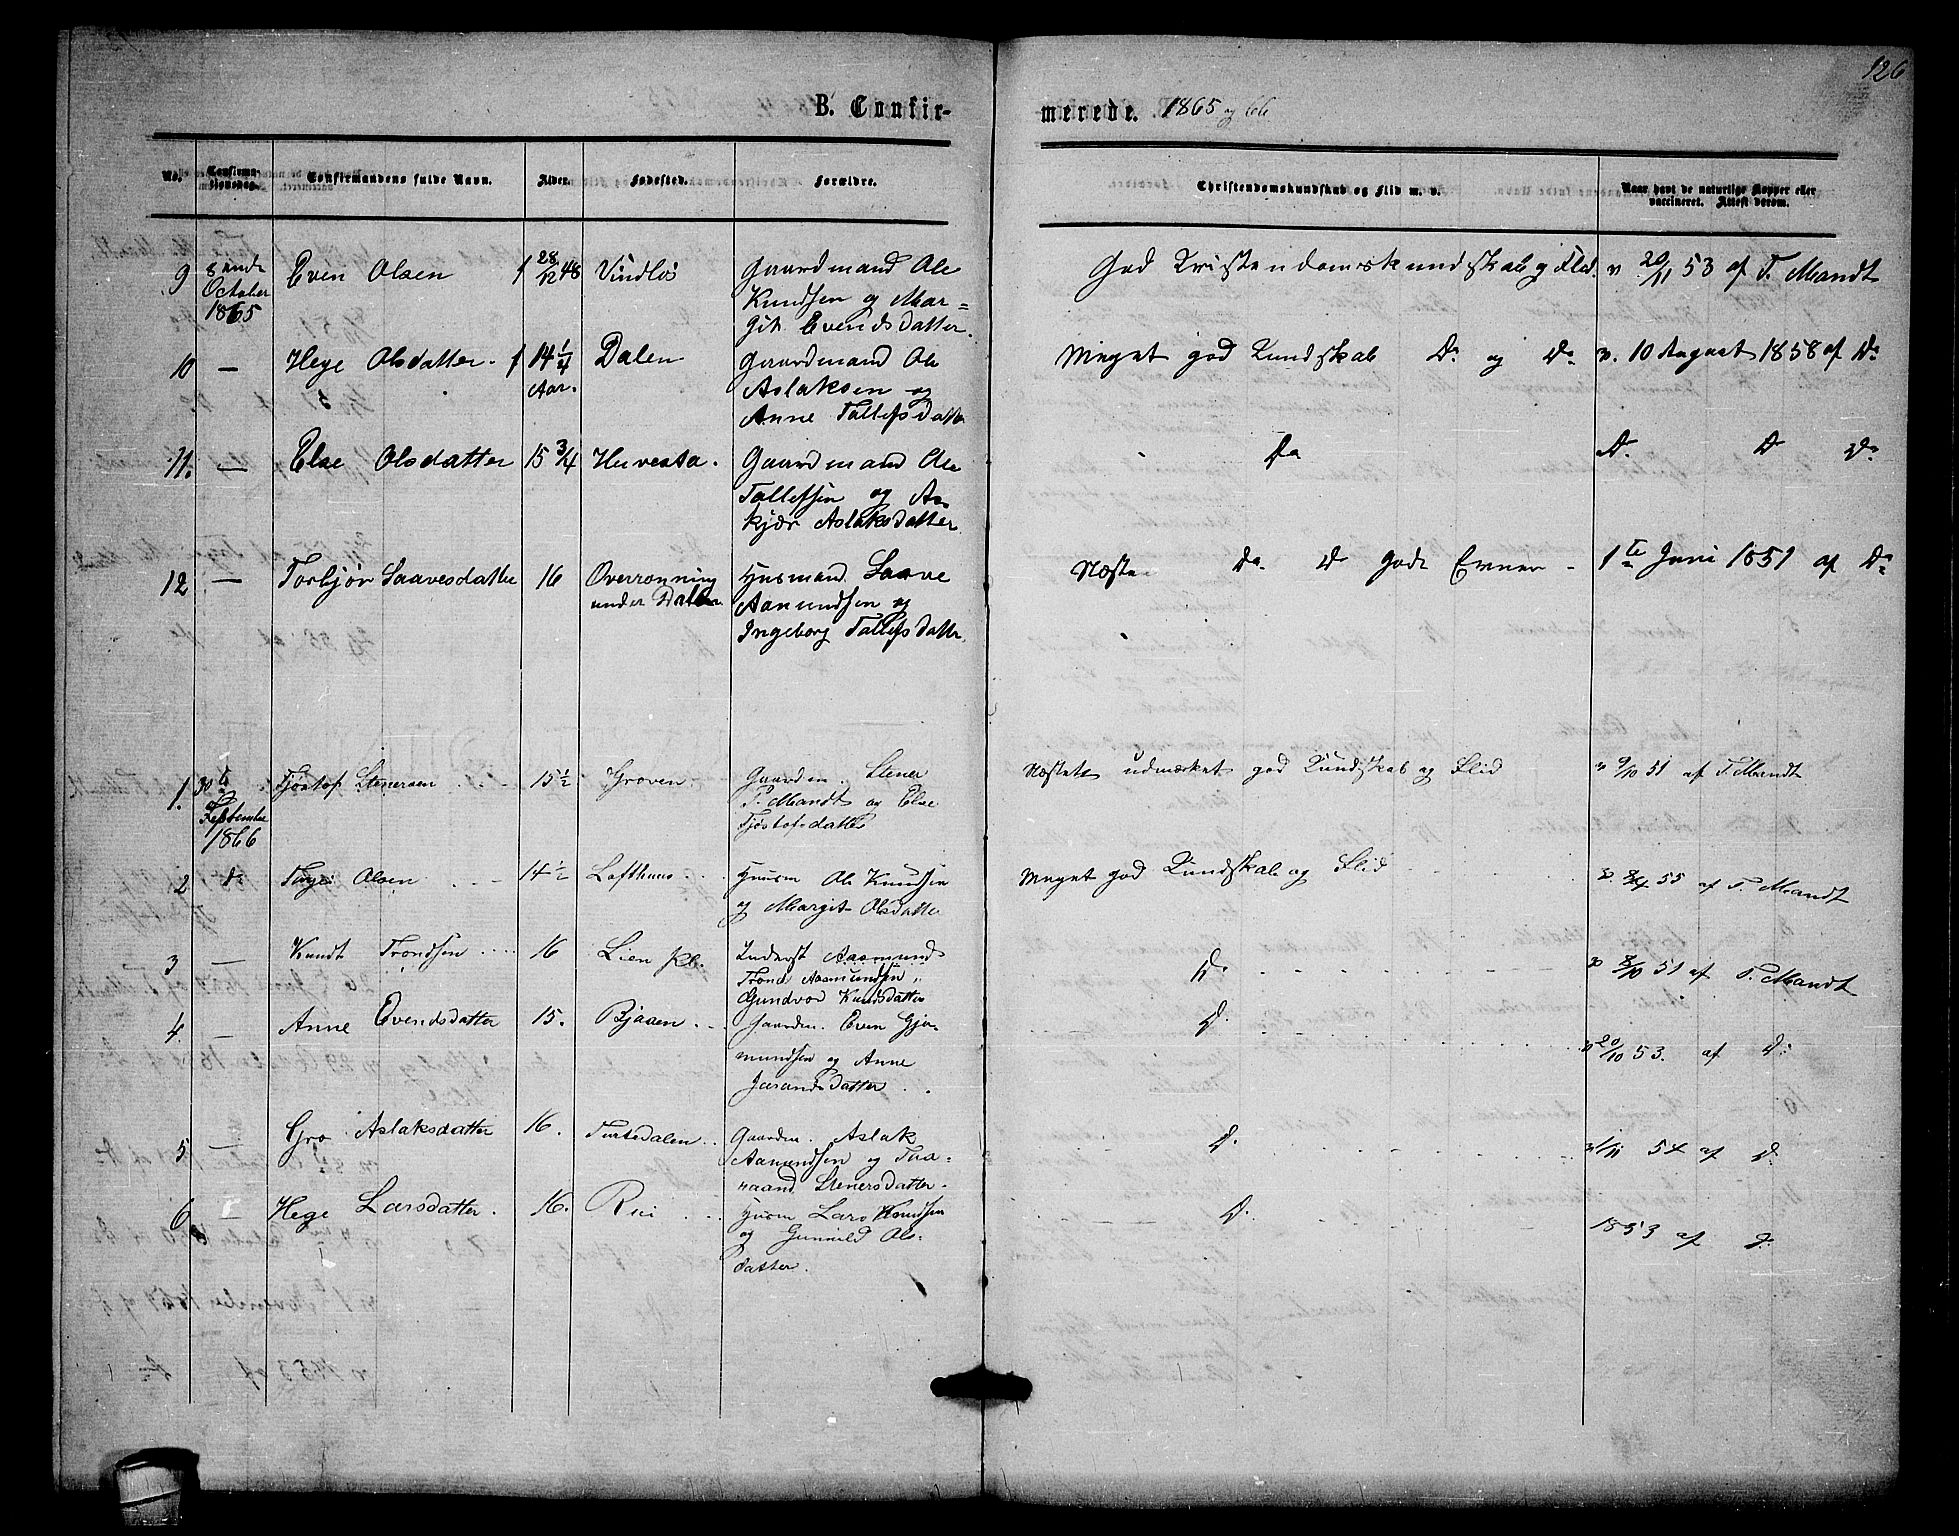 126
B. Confirmerede. 1865 og 66
No. Confirmationsdag. Confirmandens fulde Navn. Alder. Fødested. Forældre. Christendomskundskab og Flid m. v. Naar havt de naturlige Kopper eller vaccineret. Attest derom.
9 8ende October 1865 Even Olsen f 28/12 48 Vindlös Gaardmand Ole
Knudsen og Mar=
git Evendsdatter.
God Kristendomskundskab og Flid. v 20/11 53 af T. Mandt
10 — Hege Olsdatter. f 14 1/4 Aar. Dalen Gaardmand Ole
Aslaksen og
Anne Tallefsdatter
Meget god Kundskab Do og Do v. 10 August 1858 af Do
11. — Else Olsdatter 15 3/4 Huvesta. Gaardmand Ole
Tallefsen og As-
kjær Aslaksdatter.
Do Do Do Do
12 — Torbjör Saavesdatter 16 Overrønning
under Dalen. Husmand Saave
Aamundsen og
Ingeborg Tallefsdatter.
Næsten Do Do gode Evner - 1te Juni 1851 af Do
1. 30te September 1866 Tjöstof Stenersen 15 1/2 Groven. Gaardm. Stener
T. Mandt og Else
Tjöstofsdatter
Næsten udmærket god Kundskab og Flid v 9/10 51 af T. Mandt
2 do Torge Olsen 14 1/2 Lofthuus Huusm Ole Knudsen
og Margit Olsdatter
Meget god Kundskab og Flid v. 55 af T. Mandt
3 — Knudt Trondsen 16 Lien pl. Inderst Aasmund
Trond Aasmundsen
Gundvor Knudsdatter
Do v 8/10 51 af T. Mandt
4. — Anne Evendsdatter 15. Bjaaen Gaardm. Even Gjer-
mundsen og Anne
Jarandsdatter
Do v 20/10 53. af Do
5 — Gro Aslaksdatter 16. Turtedalen Gaardm. Aslak
Aamundsen og Tha-
raand Stenersdatter
Do v 1/11 54 af Do
6 — Hege Larsdatter. 16. Rui Husm Lars Knudsen
og Gunnild Ols-
datter.
Do 1853 af Do